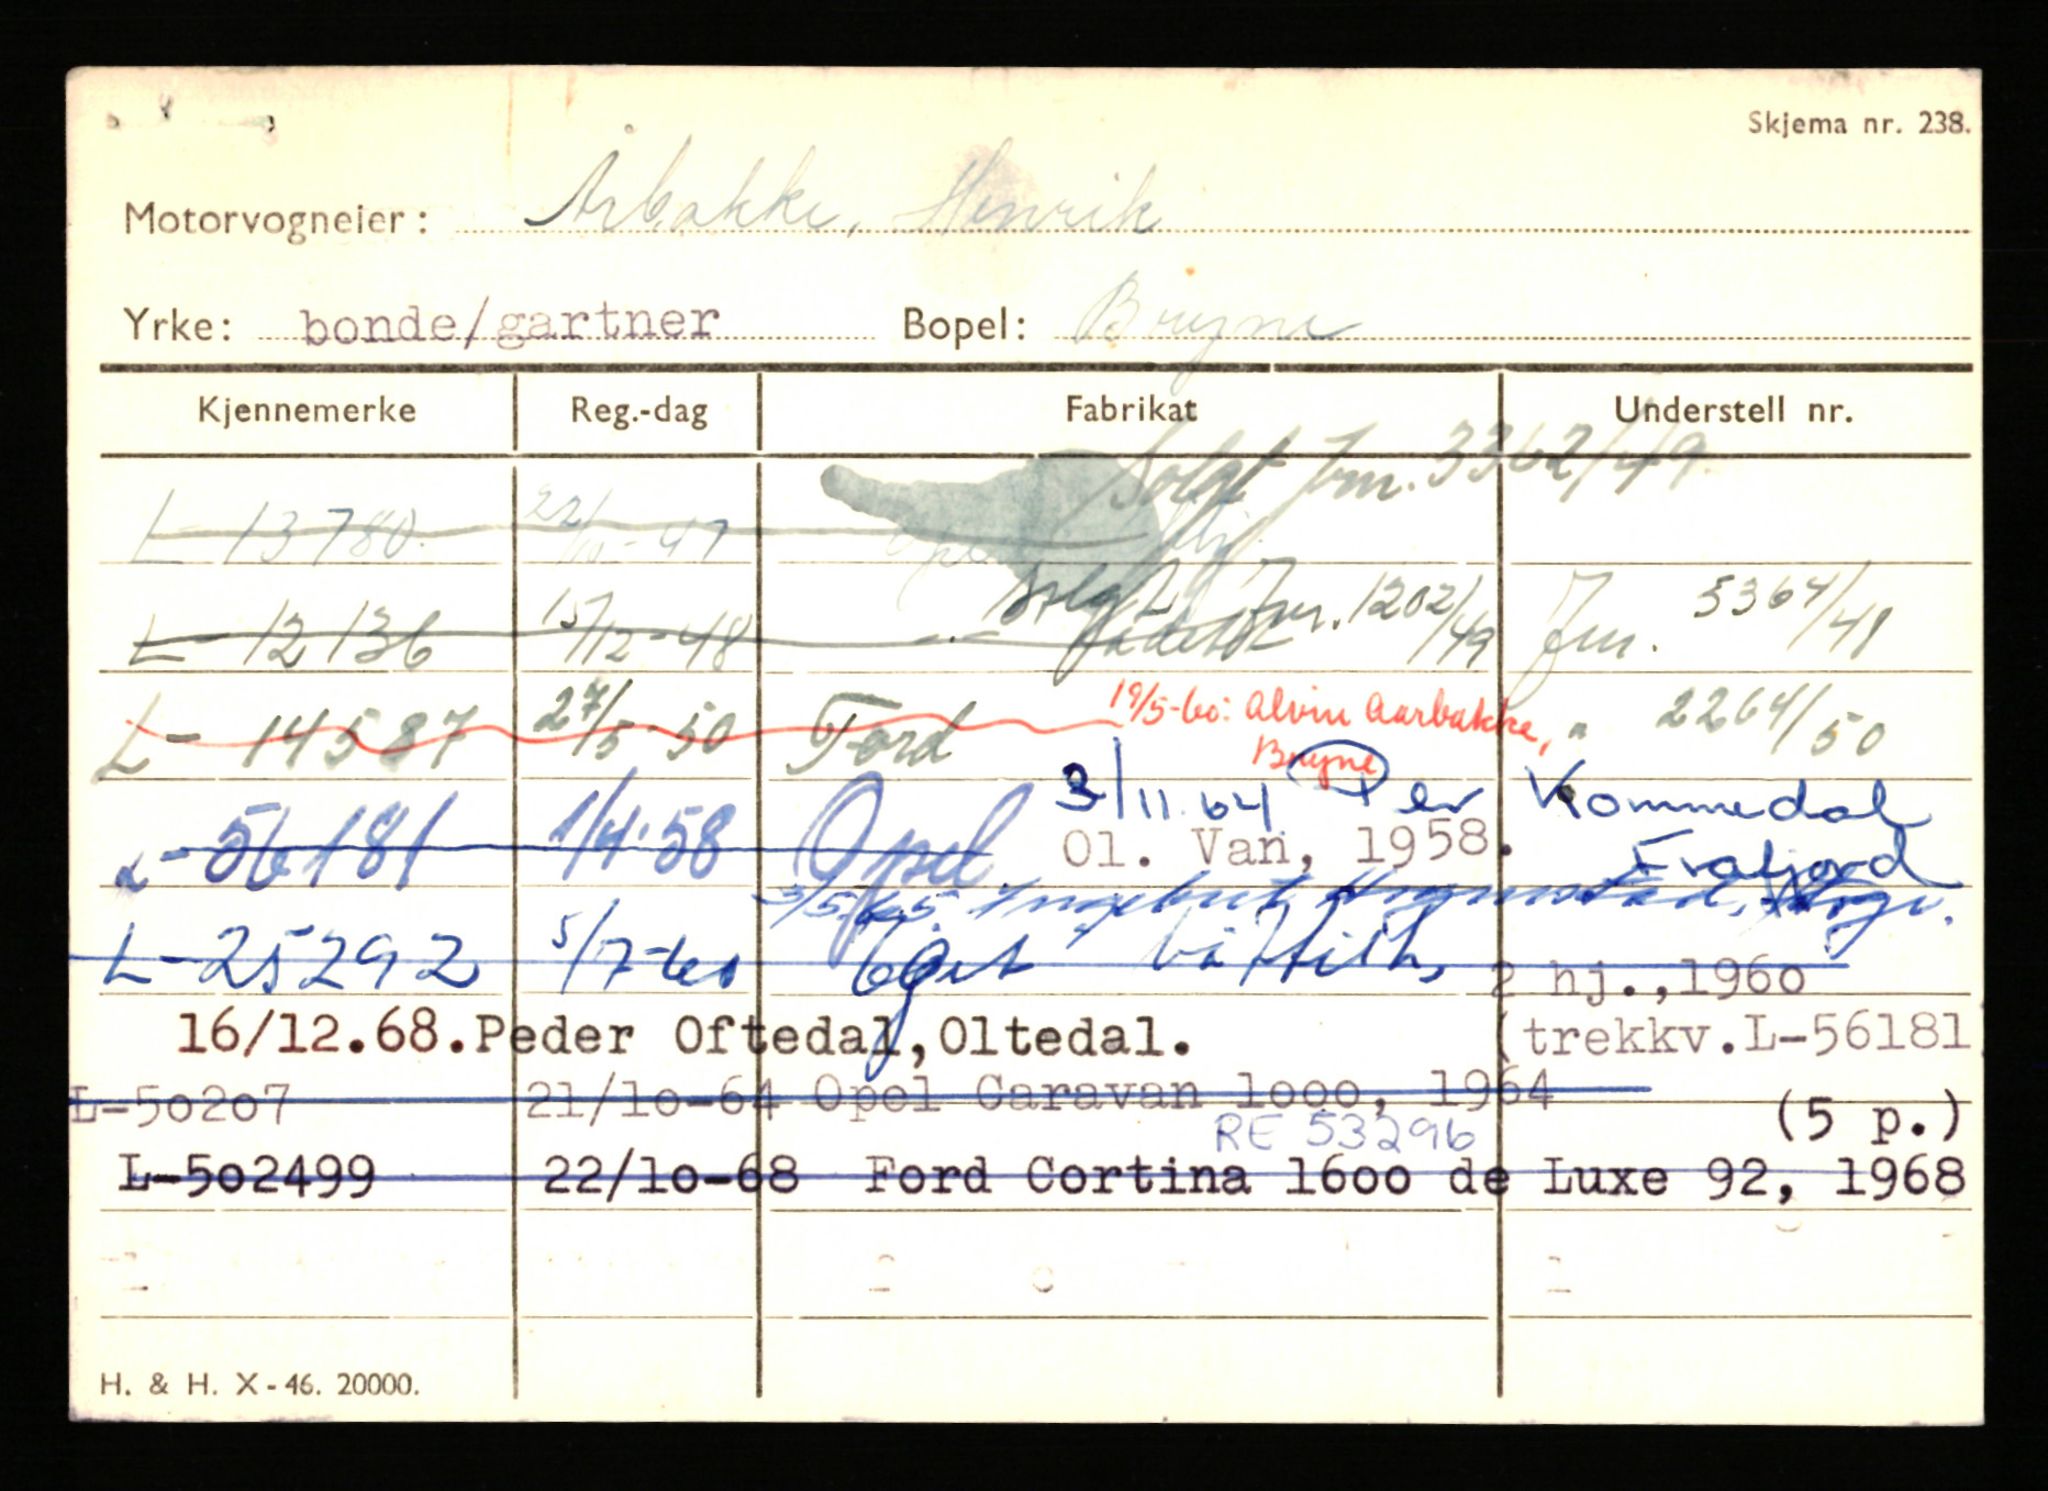 Skjema nr. 238.
Motorvogneier: Årbakke, Henrik
Yrke: bonde/gartner Bopel: Bryne
Kjennemerke Reg.-dag Fabrikat Understell nr.
Solgt Jnr. 3362/49.
L-13780. 22/10-47
Solgt Jnr. 1202/49 Jnr. 5364/48
L-12136 15/12-48
19/5-60: Alvin Aarbakke,
L-14587 27/5-50 Ford " 2264/50
Bryne
3/11.64 Per Kommedal
L-56181 1/4.58 Opel Ol. Van, 1958.
Frafjord
3/5.65
L-25292 5/7-60 2 hj.,1960
16/12.68.Peder Oftedal,Oltedal. (trekkv.L-56181
L-50207 21/10-64 Opel Caravan 1000, 1964
RE 53296 (5 p.)
L-502499 22/10-68 Ford Cortina 1600 de Luxe 92, 1968
H. & H. X-46. 20000.